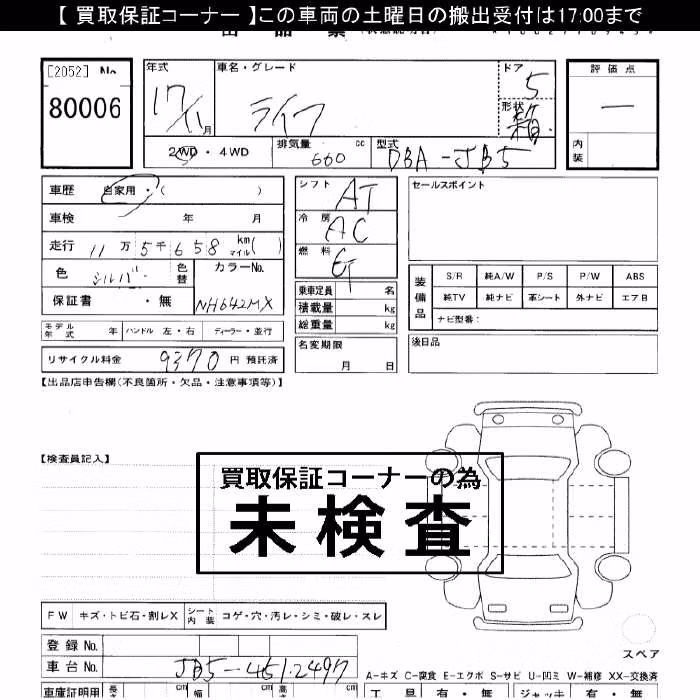 【 買取保証コーナー 】この車両の土曜日の搬出受付は17:00まで
[2052] No.
80006
年式 17/11月
車名・グレード ライフ
ドア 5
形状 箱
評価点 —
内装
2WD・4WD
排気量 660 cc
型式 DBA-JB5
車歴 自家用・( )
車検 年 月
走行 11万5千658 km マイル( )
色 シルバー 色替 カラーNo. NH642MX
保証書 ・無
シフト AT
冷房 AC
燃料 G
乗車定員 名
積載量 kg
総重量 kg
セールスポイント
装備品 S/R 純A/W P/S P/W ABS
純TV 純ナビ 革シート 外ナビ エアB
ナビ型番:
モデル年式 年 ハンドル 左・右 ディーラー・並行
リサイクル料金 9370 円 預託済
名変期限 月 日
後日品
【出品店申告欄(不良箇所・欠品・注意事項等)】
【検査員記入】
買取保証コーナーの為
未検査
FW キズ・トビ石・割レX シート内装 コゲ・穴・汚レ・シミ・破レ・スレ
登録No.
車台No.
スペア
A-キズ C-腐食 E-エクボ S-サビ U-凹ミ W-補修 XX-交換済
車庫証明用 長さ cm 幅 cm 高さ cm
工具 有・無 ジャッキ 有・無